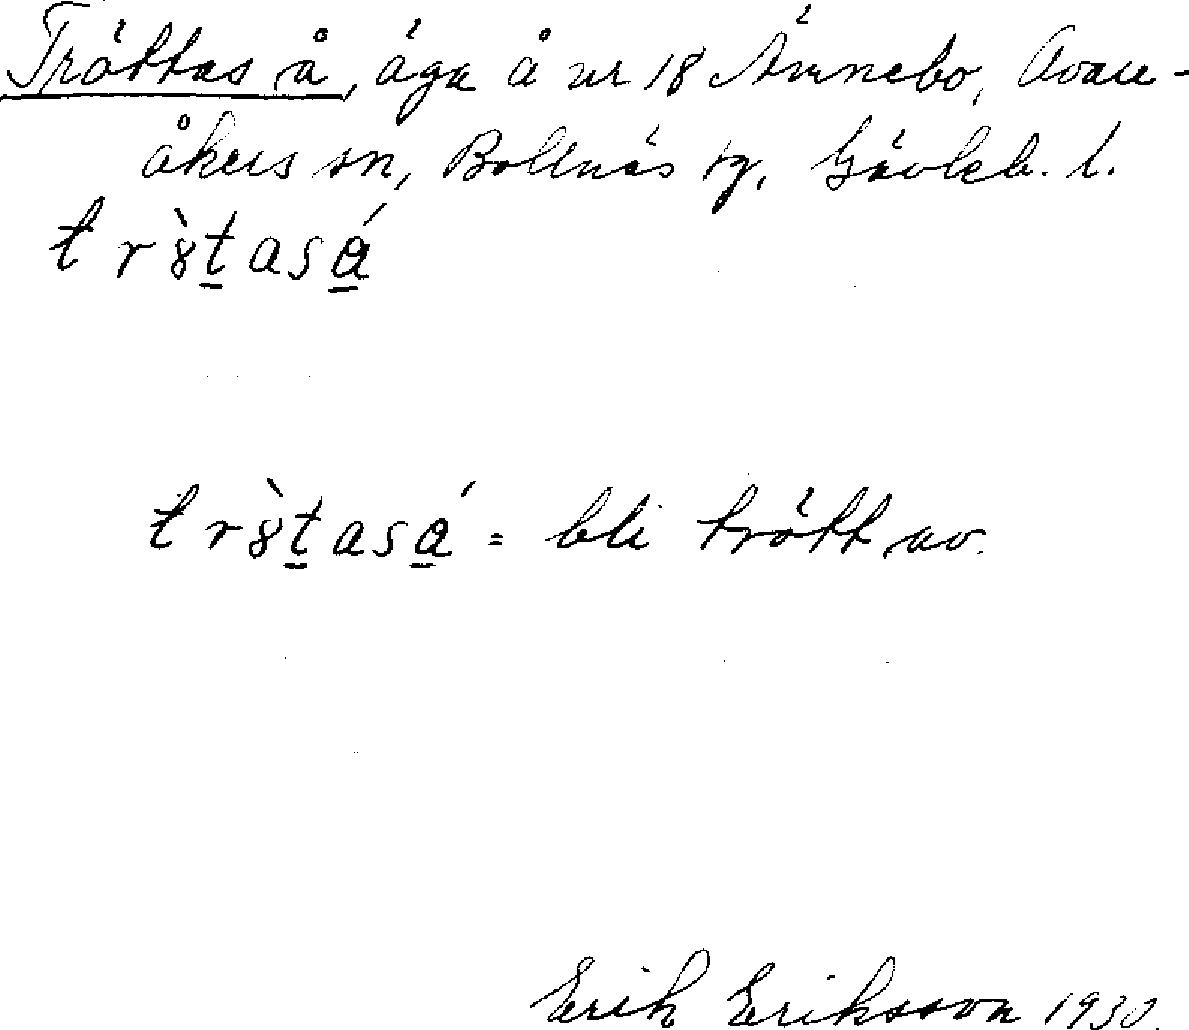 Tröttas å, äga å nr 18 Ämnebo, Ovan-
åkers sn, Bollnäs tg, Gävleb. l.
tr8̀t̲asá̲
tr8̀t̲asá̲ = bli trött av.
Erik Eriksson 1930.